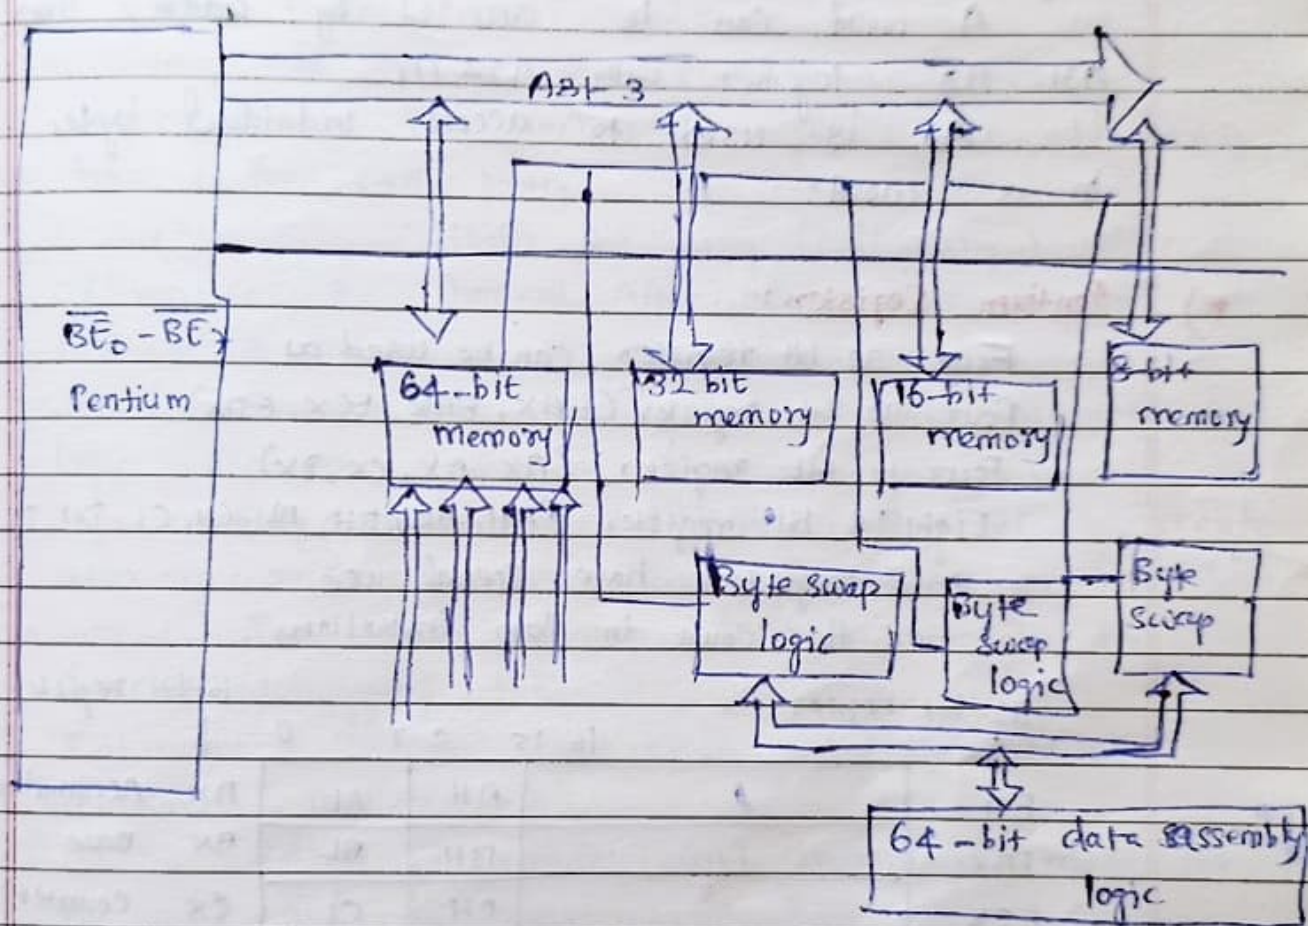 A31-3
BE0 - BE7
Pentium
64-bit
memory
32 bit
memory
16-bit
memory
8-bit
memory
Byte swap
logic
Byte
swap
logic
Byte
swap
64-bit data assembly
logic